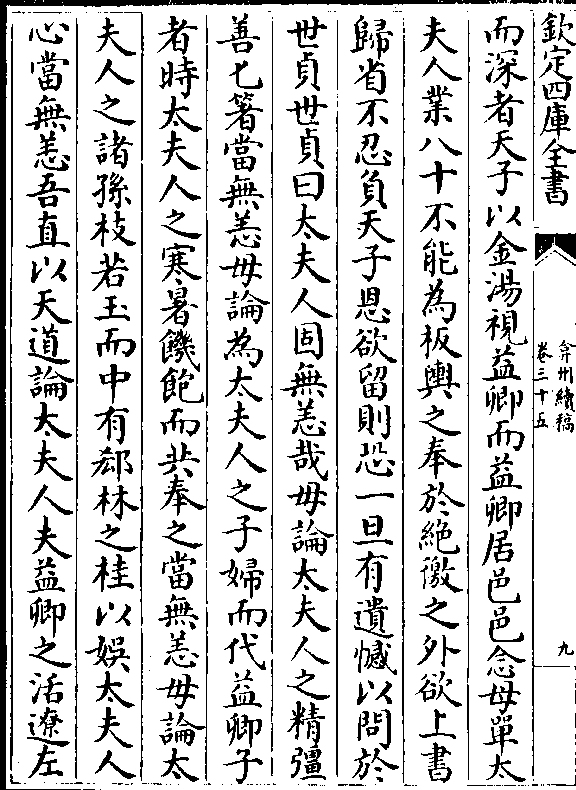 欽定四庫全書
弇州續稿
卷三十五
九
而深者天子以金湯視益卿而益卿居邑邑念母單太
夫人業八十不能為板輿之奉於絶徼之外欲上書
歸省不忍負天子恩欲留則恐一旦有遺憾以問於
世貞世貞曰太夫人固無恙哉毋論太夫人之精彊
善匕箸當無恙毋論為太夫人之子婦而代益卿子
者時太夫人之寒暑饑飽而共奉之當無恙毋論太
夫人之諸孫枝若玉而中有郄林之桂以娛太夫人
心當無恙吾直以天道論太夫人夫益卿之活遼左